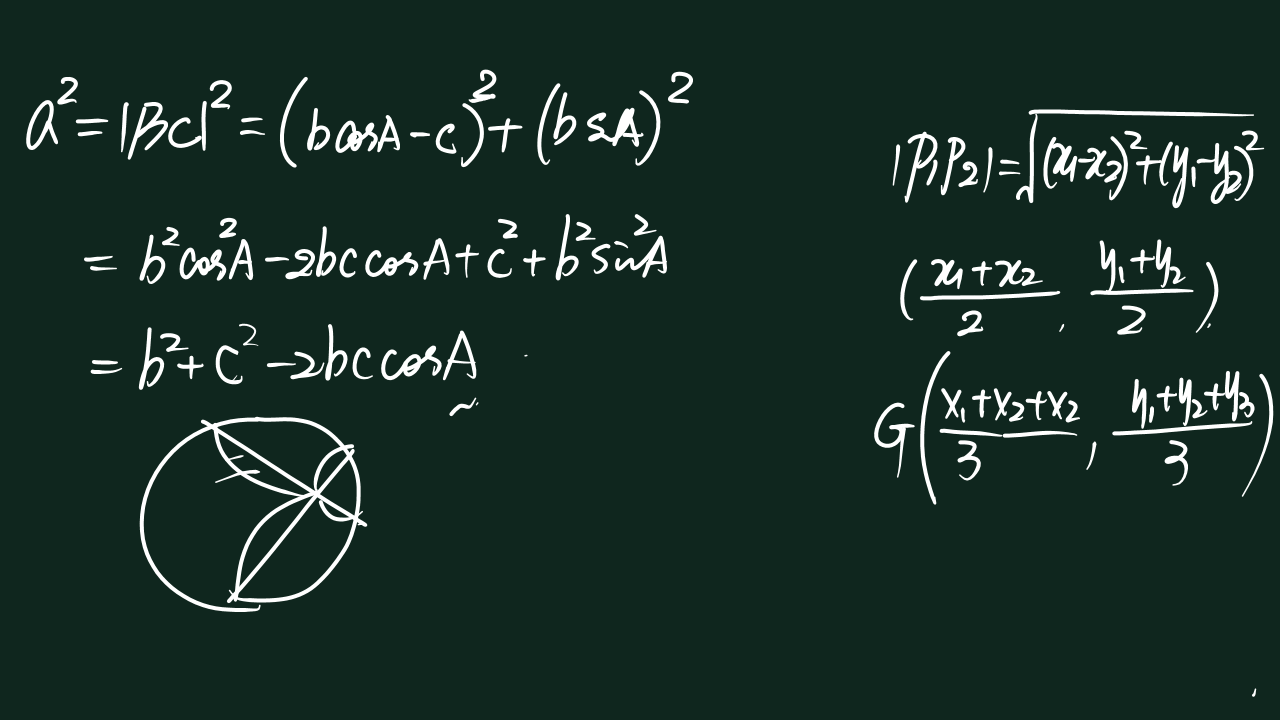 a² = |BC|² = (bcosA - c)² + (bsA)²
= b²cos²A - 2bccosA + c² + b²sin²A
= b² + c² - 2bccosA
|P₁P₂| = √((x₁-x₂)² + (y₁-y₂)²)
((x₁+x₂)/2, (y₁+y₂)/2)
G((x₁+x₂+x₂)/3, (y₁+y₂+y₃)/3)